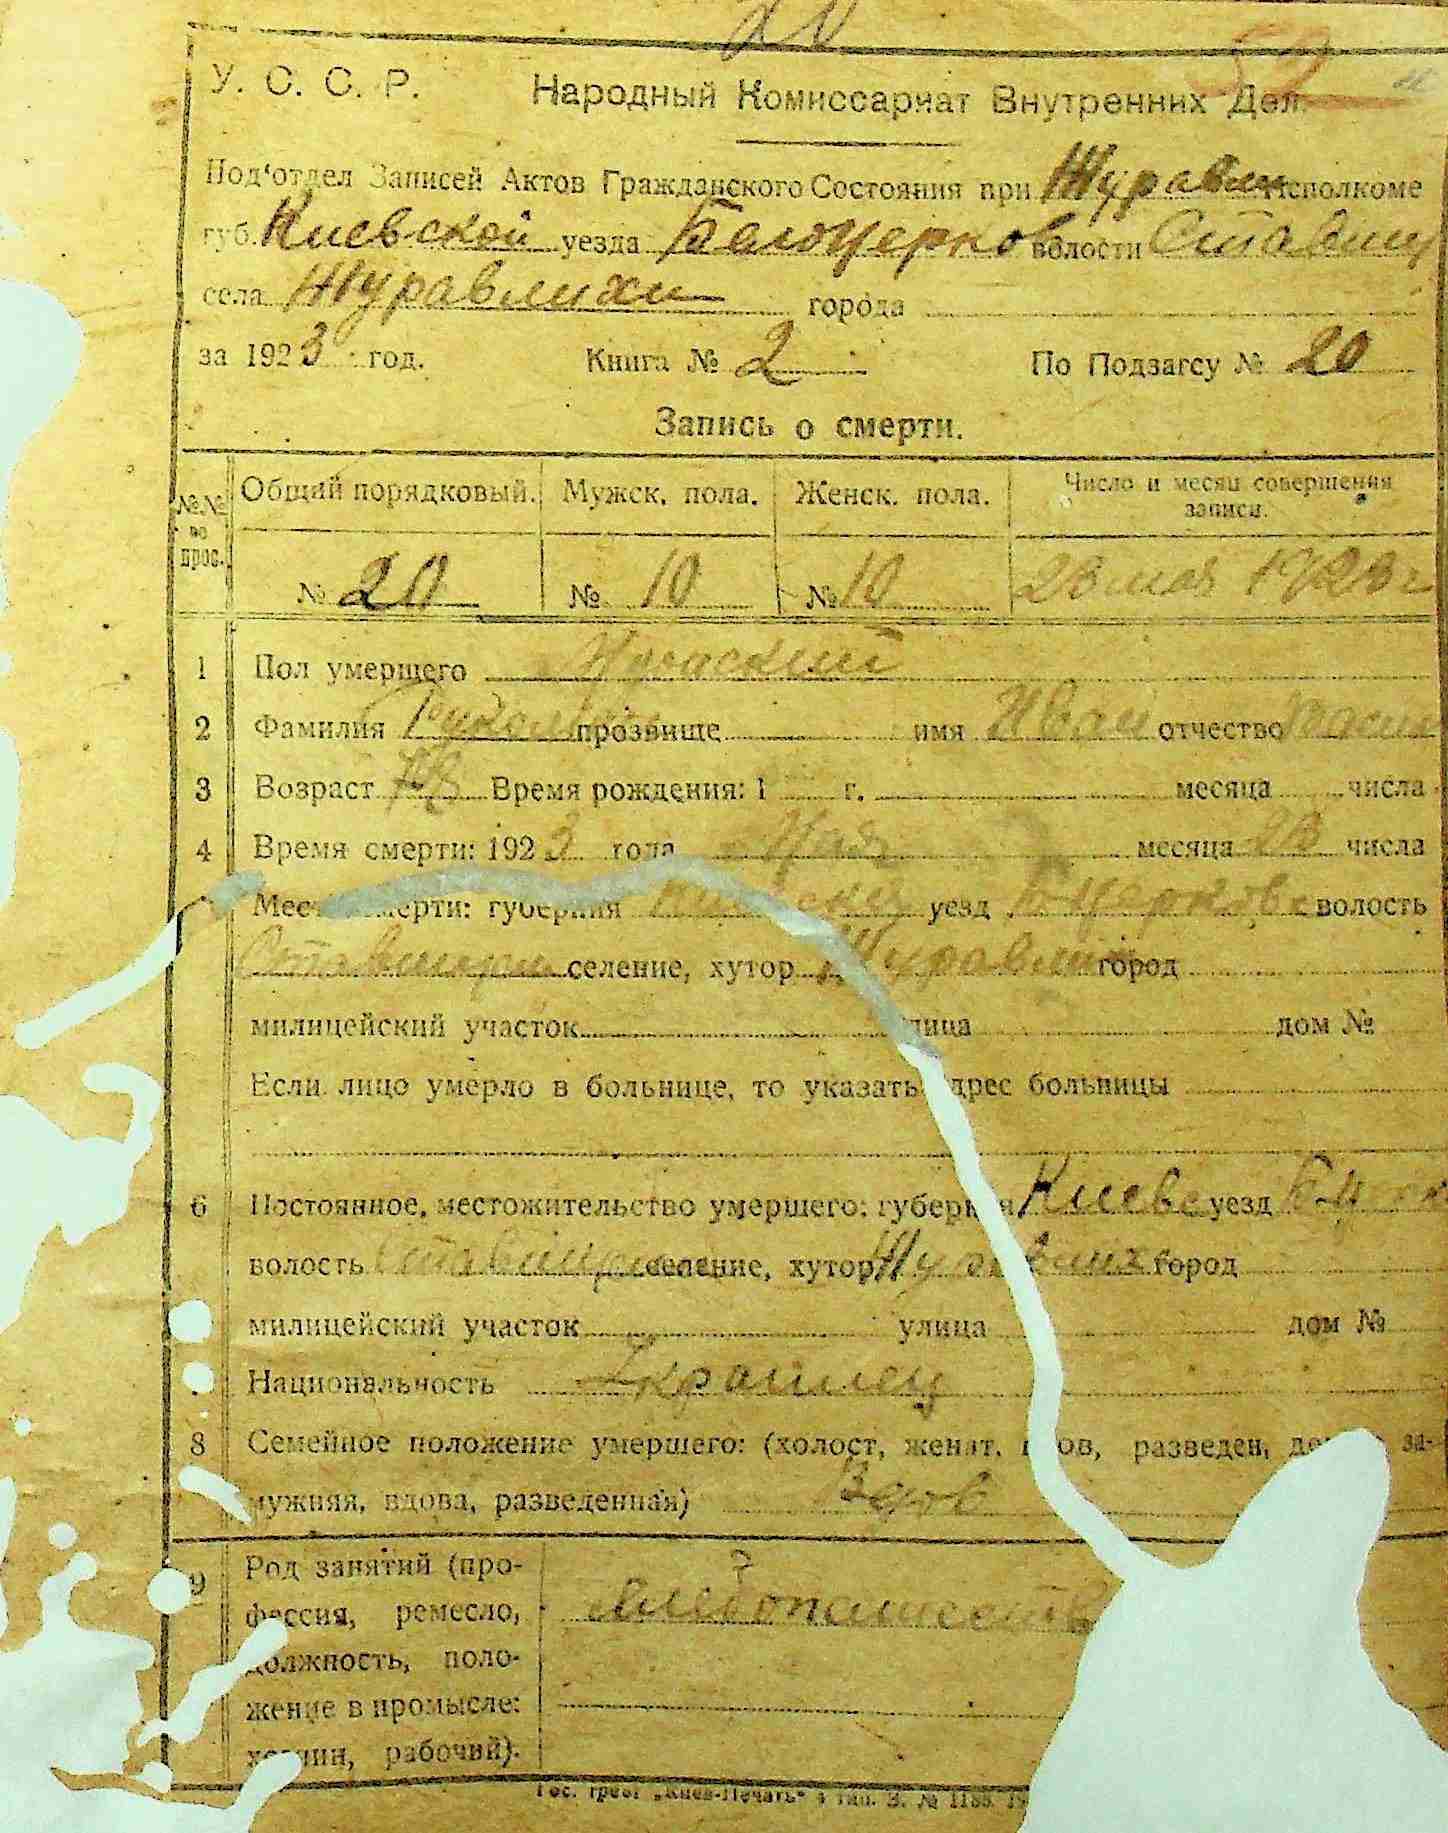 20
52
У. С. С. Р. Народный Комиссариат Внутренних Дел.
Под'отдел Записей Актов Гражданского Состояния при Журавли Исполкоме
губ. Киевской уезда Белоцерков волости Ставищ
села Журавлихи города
за 1923 год. Книга № 2 По Подзагсу № 20
Запись о смерти.
№№ по прос. Общий порядковый. Мужск. пола. Женск. пола. Число и месяц совершения записи.
№ 20 № 10 № 10 23 мая 1923 г
1 Пол умершего Мужский
2 Фамилия прозвище имя Иван отчество
3 Возраст Время рождения: 1 г. месяца числа
4 Время смерти: 1923 года Мая месяца 23 числа
Мес ерти: губерния уезд Б Церковс волость
Ставищан селение, хутор Журавлих город
милицейский участок лица дом №
Если лицо умерло в больнице, то указать дрес больницы
6 Постоянное местожительство умершего: губерния Киевс уезд Б-Ц
волость селение, хутор Журавлих город
милицейский участок улица дом №
Национальность Украинец
8 Семейное положение умершего: (холост, женат, ов, разведен, за-
мужняя, вдова, разведенная) Вдов
9 Род занятий (про-
фессия, ремесло, хлебопашеств
должность, поло-
жение в промысле:
хозяин, рабочий).
Гос. трест „Киев-Печать“ 4 тип. З. № 1188